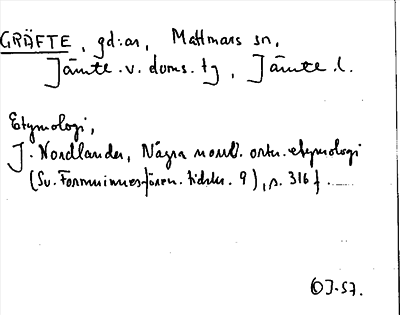 GRÄFTE, gd:ar, Mattmars sn,
Jämte. v. doms. tg, Jämte. l.
Etymologi,
J. Nordlander, Några nord. ortn. etymologi
(Sv. Fornminnesfören. tidskr. 9), s. 316 f.
OJ-57.